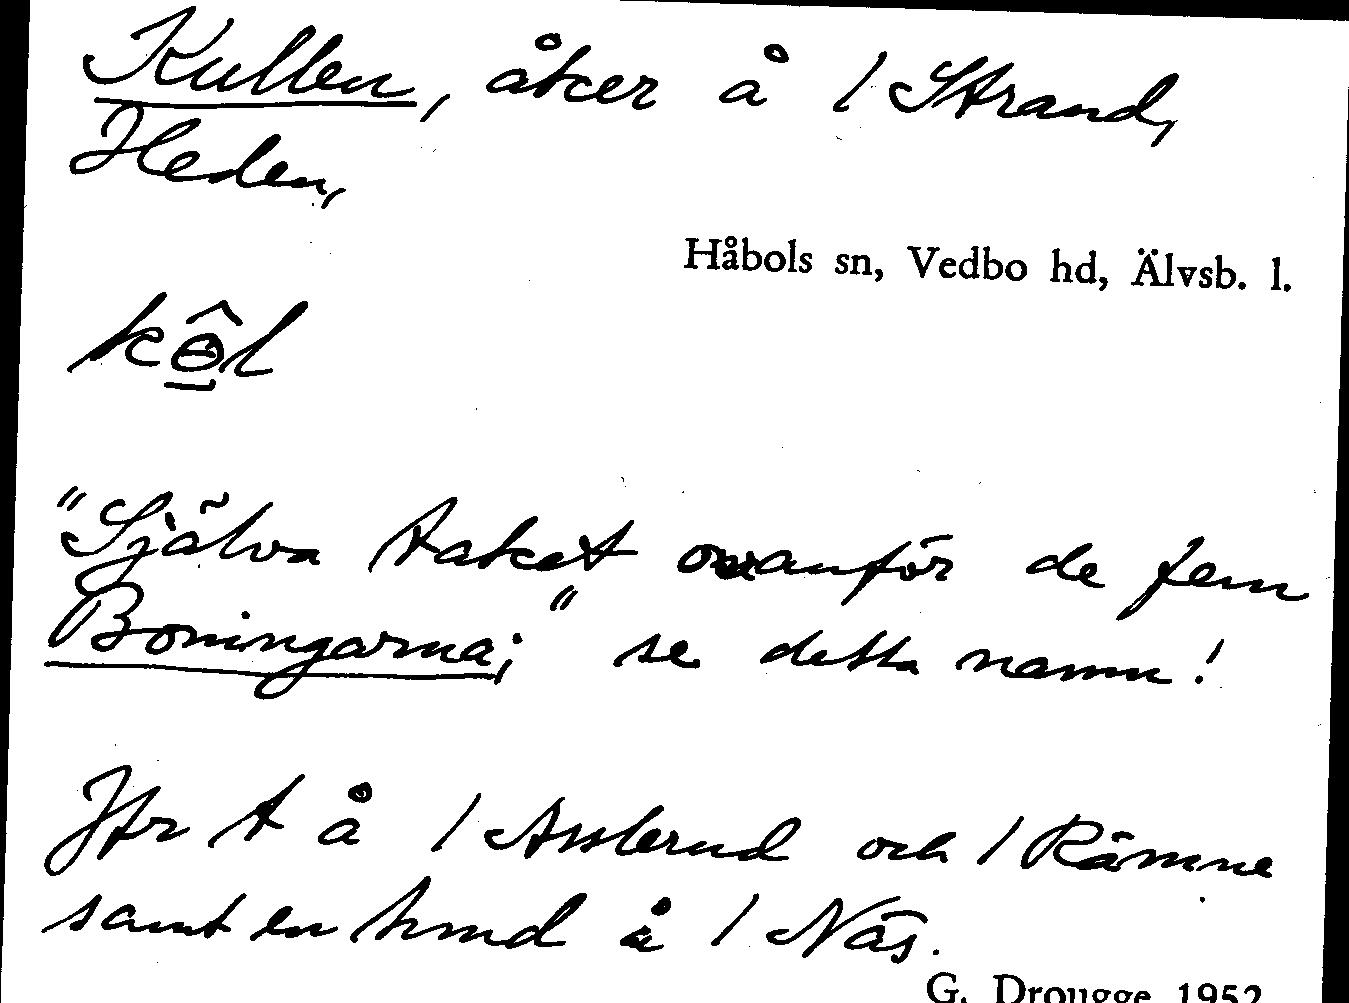 Kullen, åker å 1 Strand,
Heden,
Håbols sn, Vedbo hd, Älvsb. l.
"Själva taket ovanför de fem
Boningarna;" se detta namn!
Jfr t å 1 Asslerud och 1 Rämne
samt en hmd å 1 Näs.
G. Drougge 1952